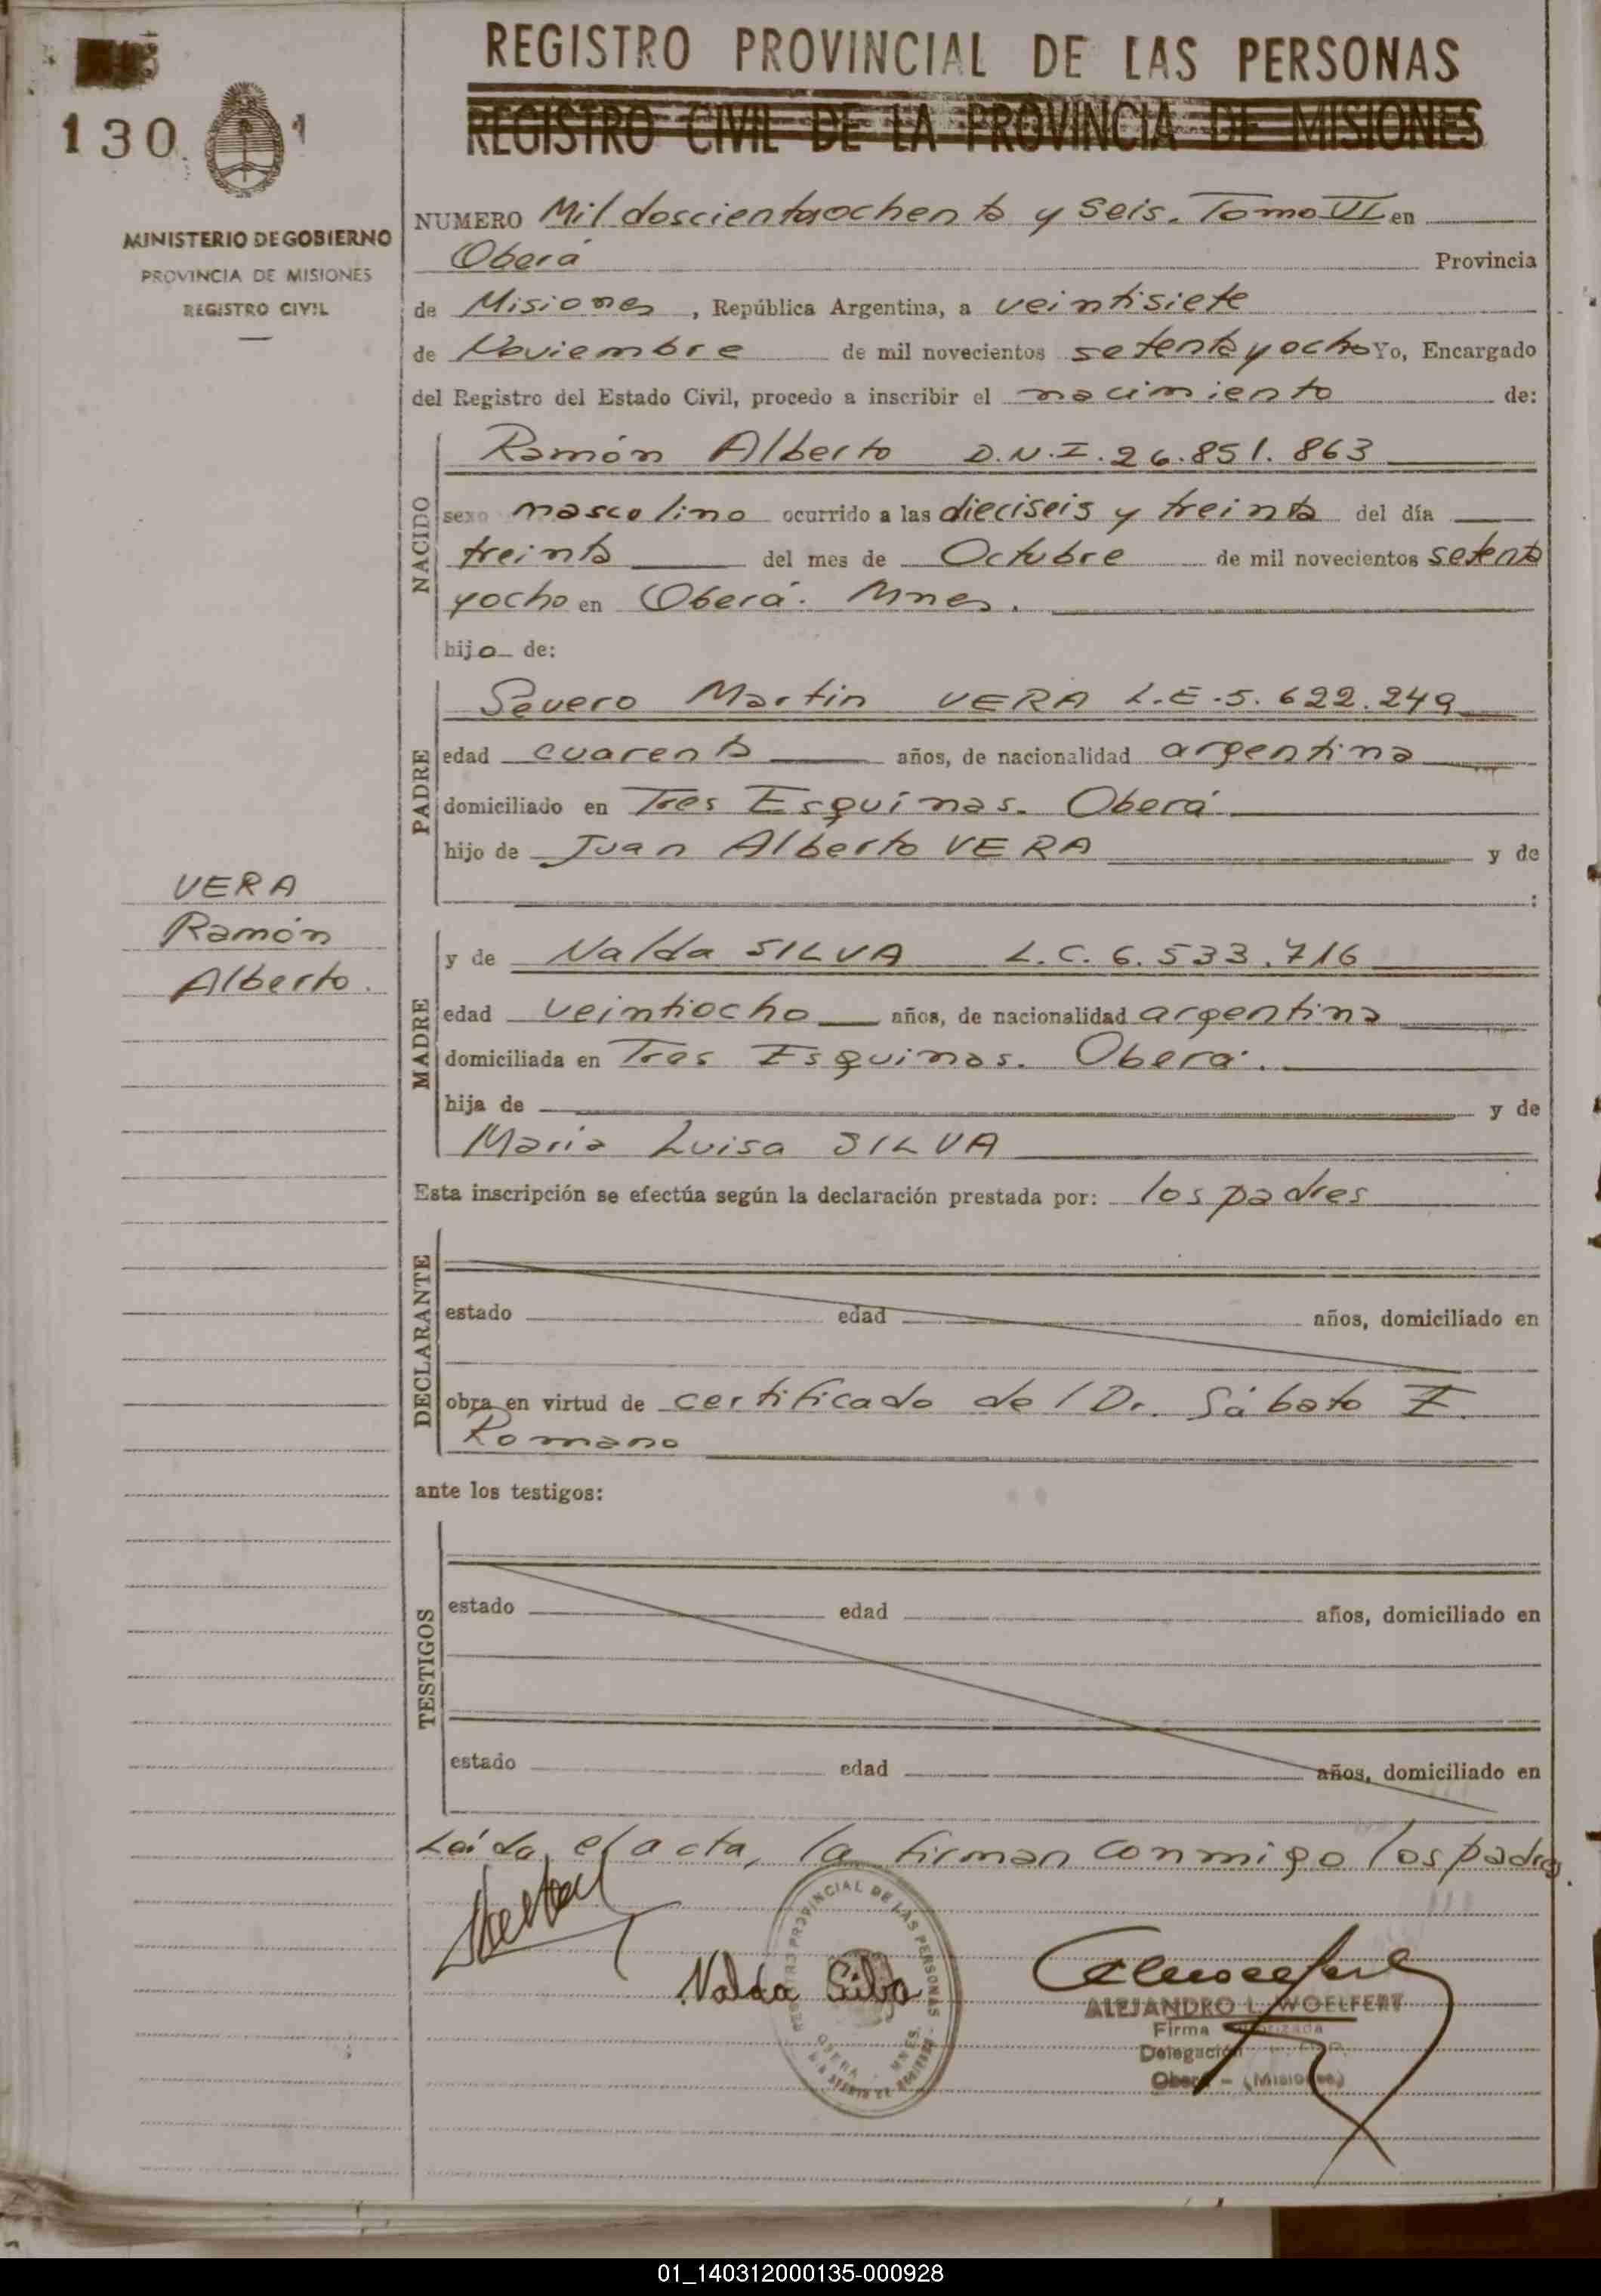 REGISTRO PROVINCIAL DE LAS PERSONAS
REGISTRO CIVIL DE LA PROVINCIA DE MISIONES
130 1
MINISTERIO DE GOBIERNO
PROVINCIA DE MISIONES
REGISTRO CIVIL
NUMERO Mil doscientos ochenta y seis. Tomo VII en
Oberá Provincia
de Misiones, República Argentina, a veintisiete
de Noviembre de mil novecientos setenta y ocho Yo, Encargado
del Registro del Estado Civil, procedo a inscribir el nacimiento de:
NACIDO
Ramón Alberto D.N.I. 26.851.863
sexo masculino ocurrido a las dieciseis y treinta del día
treinta del mes de Octubre de mil novecientos setenta
y ocho en Oberá. Mnes.
hijo de:
PADRE
Severo Martin VERA L.E. 5.622.249
edad cuarenta años, de nacionalidad argentina
domiciliado en Tres Esquinas. Oberá
hijo de Juan Alberto VERA y de
:
VERA
Ramón
Alberto.
MADRE
y de Nalda SILVA L.C. 6.533.716
edad veintiocho años, de nacionalidad argentina
domiciliada en Tres Esquinas. Oberá.
hija de y de
Maria Luisa SILVA
Esta inscripción se efectúa según la declaración prestada por: los padres
DECLARANTE
estado edad años, domiciliado en
obra en virtud de certificado del Dr. Sábato I.
Romano
ante los testigos:
TESTIGOS
estado edad años, domiciliado en
estado edad años, domiciliado en
Leída el acta, la firman conmigo los padres.
REGISTRO PROVINCIAL DE LAS PERSONAS
OBERA - MNES.
Nalda Silva
ALEJANDRO L. WOELFERT
Firma Autorizada
Delegación
Oberá - (Misiones)
01_140312000135-000928